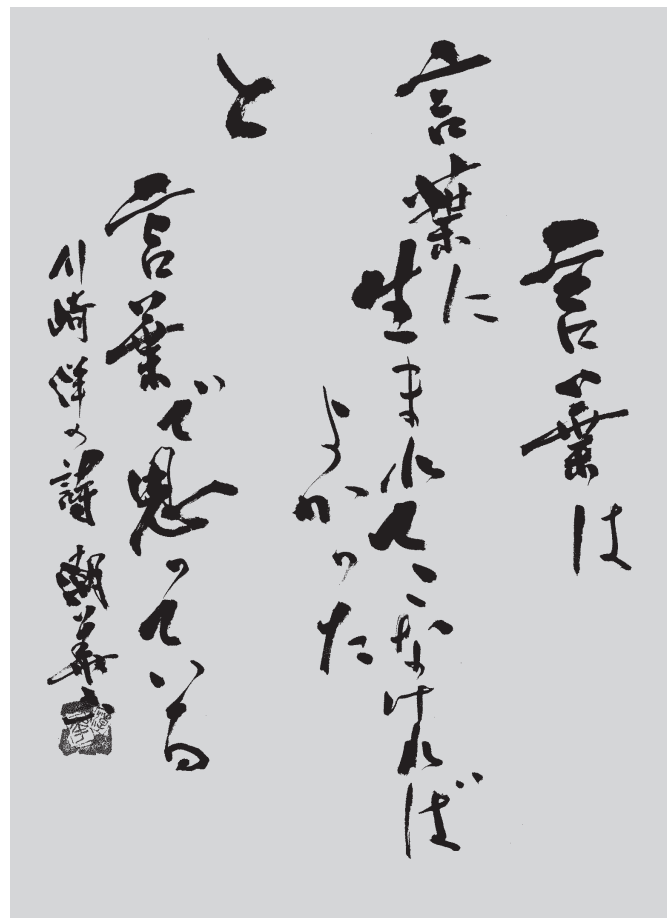 言葉は
言葉に生まれてこなければ
よかった
と
言葉で思っている
川崎洋の詩